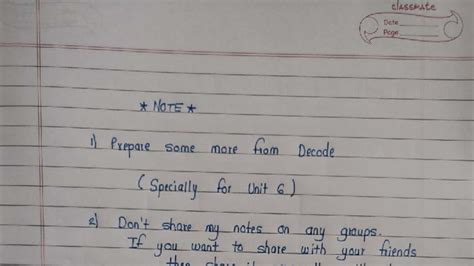 classmate
Date
Page
* NOTE *
1) Prepare some more from Decode
(Specially for Unit 6)
2) Don't share my notes on any groups.
If you want to share with your friends
then share